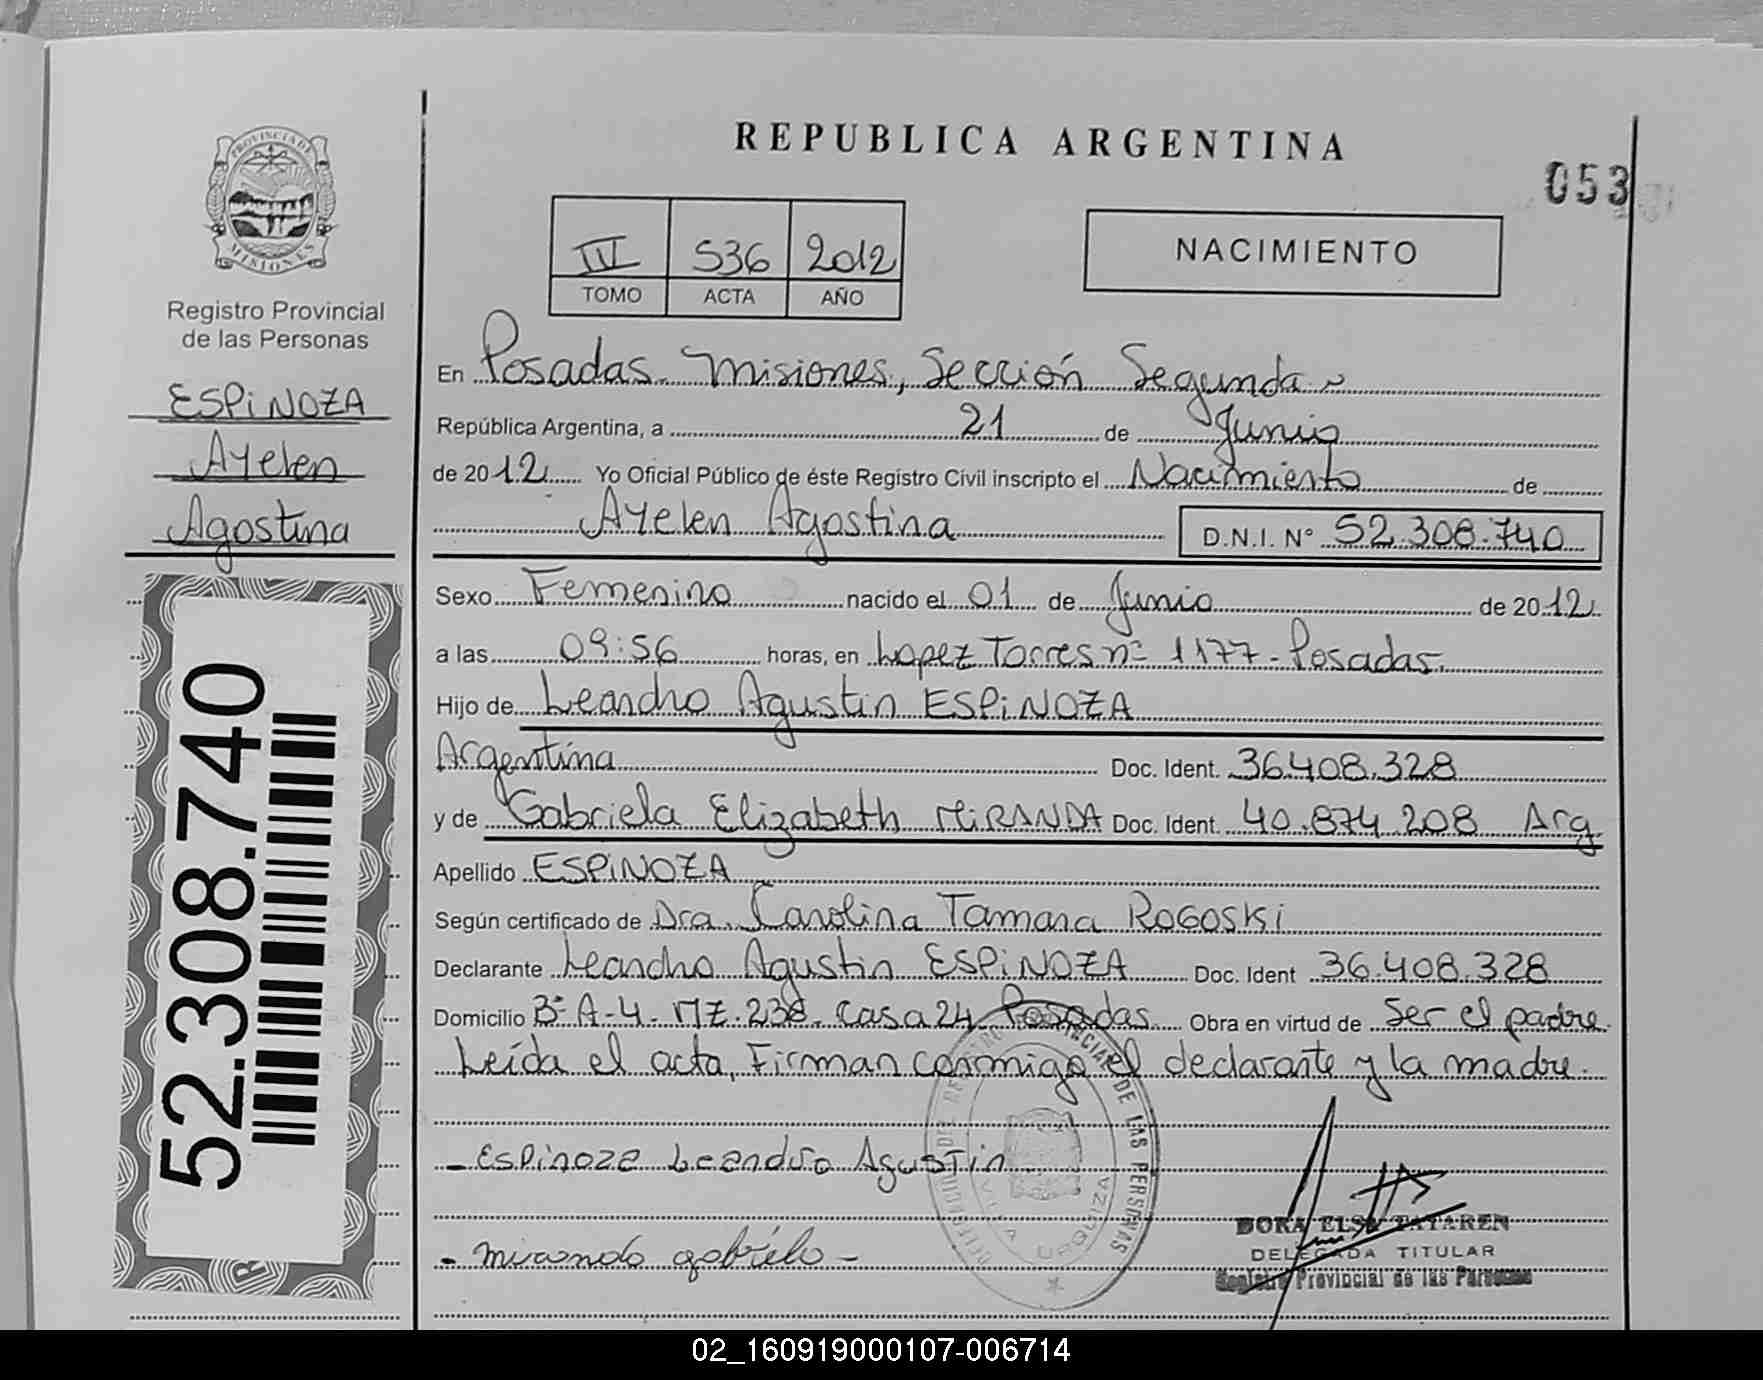 REPUBLICA ARGENTINA
053
PROVINCIA DE MISIONES
Registro Provincial
de las Personas
ESPINOZA
Ayelen
Agostina
52.308.740
III 536 2012
TOMO ACTA AÑO
NACIMIENTO
En Posadas Misiones, Sección Segunda
República Argentina, a 21 de Junio
de 2012 Yo Oficial Público de éste Registro Civil inscripto el Nacimiento de
Ayelen Agostina D.N.I. N° 52.308.740
Sexo Femenino nacido el 01 de Junio de 2012
a las 09:56 horas, en Lopez Torres n° 1177 - Posadas.
Hijo de Leandro Agustin ESPINOZA
Argentina Doc. Ident. 36.408.328
y de Gabriela Elizabeth MIRANDA Doc. Ident. 40.874.208 Arg
Apellido ESPINOZA
Según certificado de Dra. Carolina Tamara ROGOSKI
Declarante Leandro Agustin ESPINOZA Doc. Ident 36.408.328
Domicilio B° A-4- MZ. 238. Casa 24 Posadas Obra en virtud de Ser el padre.
Leída el acta, Firman conmigo el declarante y la madre.
- Espinoza Leandro Agustin
- Miranda gabriela -
DE LAS PERSONAS
URQUIZA
DORA ELSA TATAREN
DELEGADA TITULAR
Registro Provincial de las Personas
02_160919000107-006714